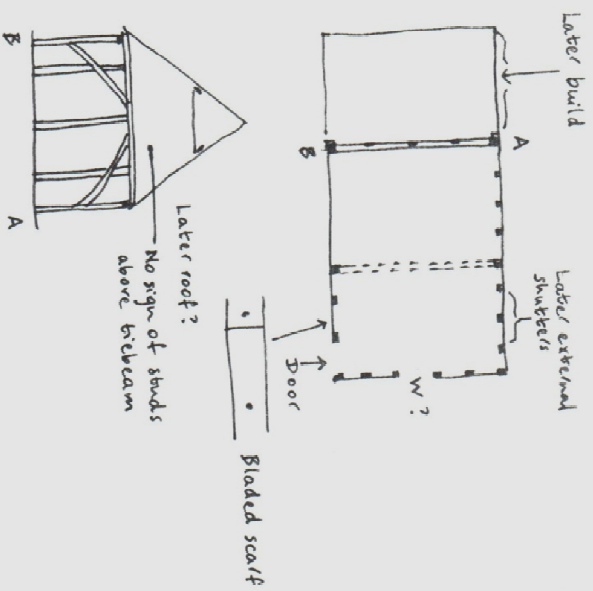 Later build
A
B
Later external
shutters
W?
Door
Bladed scarf
Later roof?
No sign of studs
above tiebeam
B
A